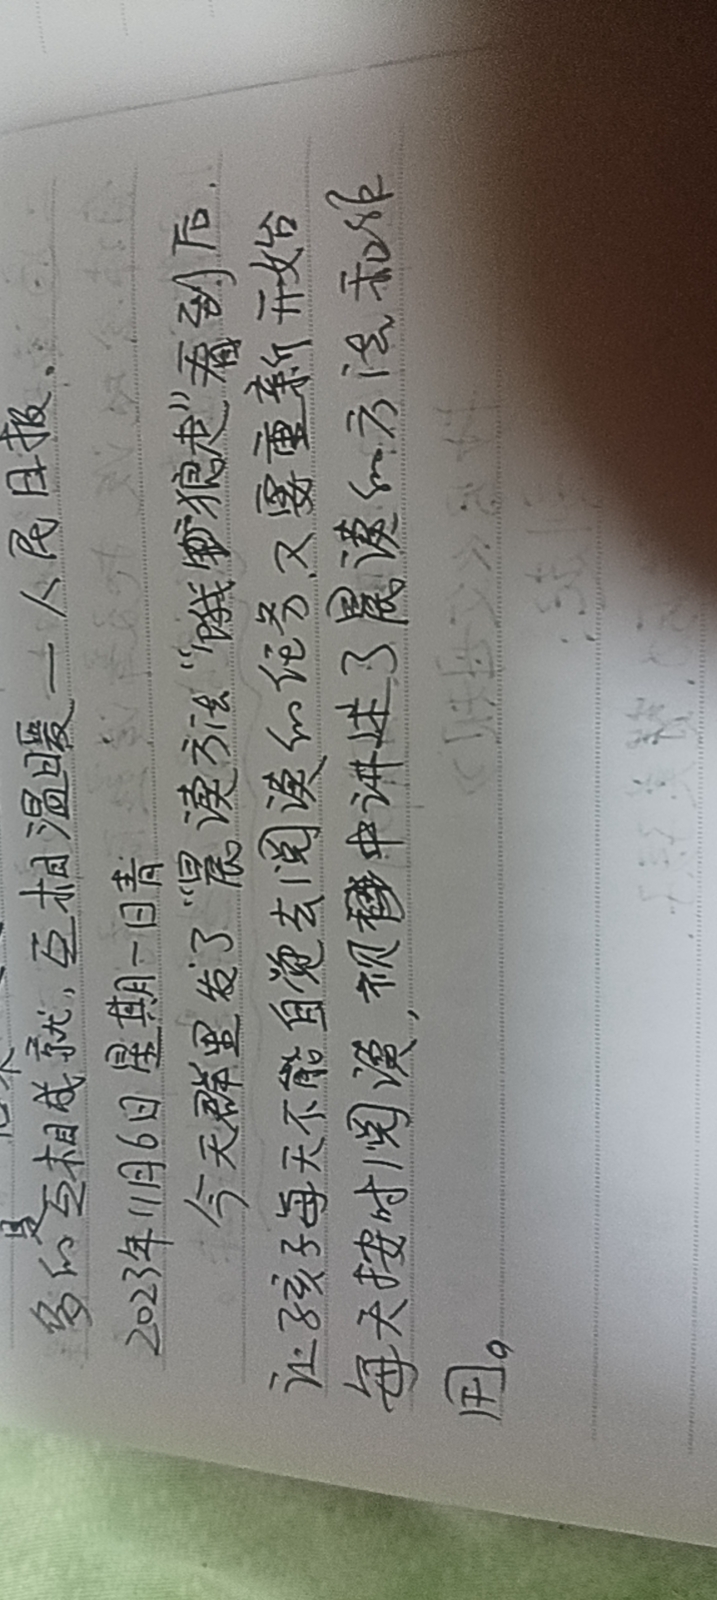 多的是互相成就，互相温暖一人民日报.
2023年11月6日 星期一日青
今天群里发了“晨读方法“饿狼走”看到后.
让孩子每天不能自觉去阅读的任务.又要重新开始
每天按时阅读，视频中讲述了晨读的方法和作
用。